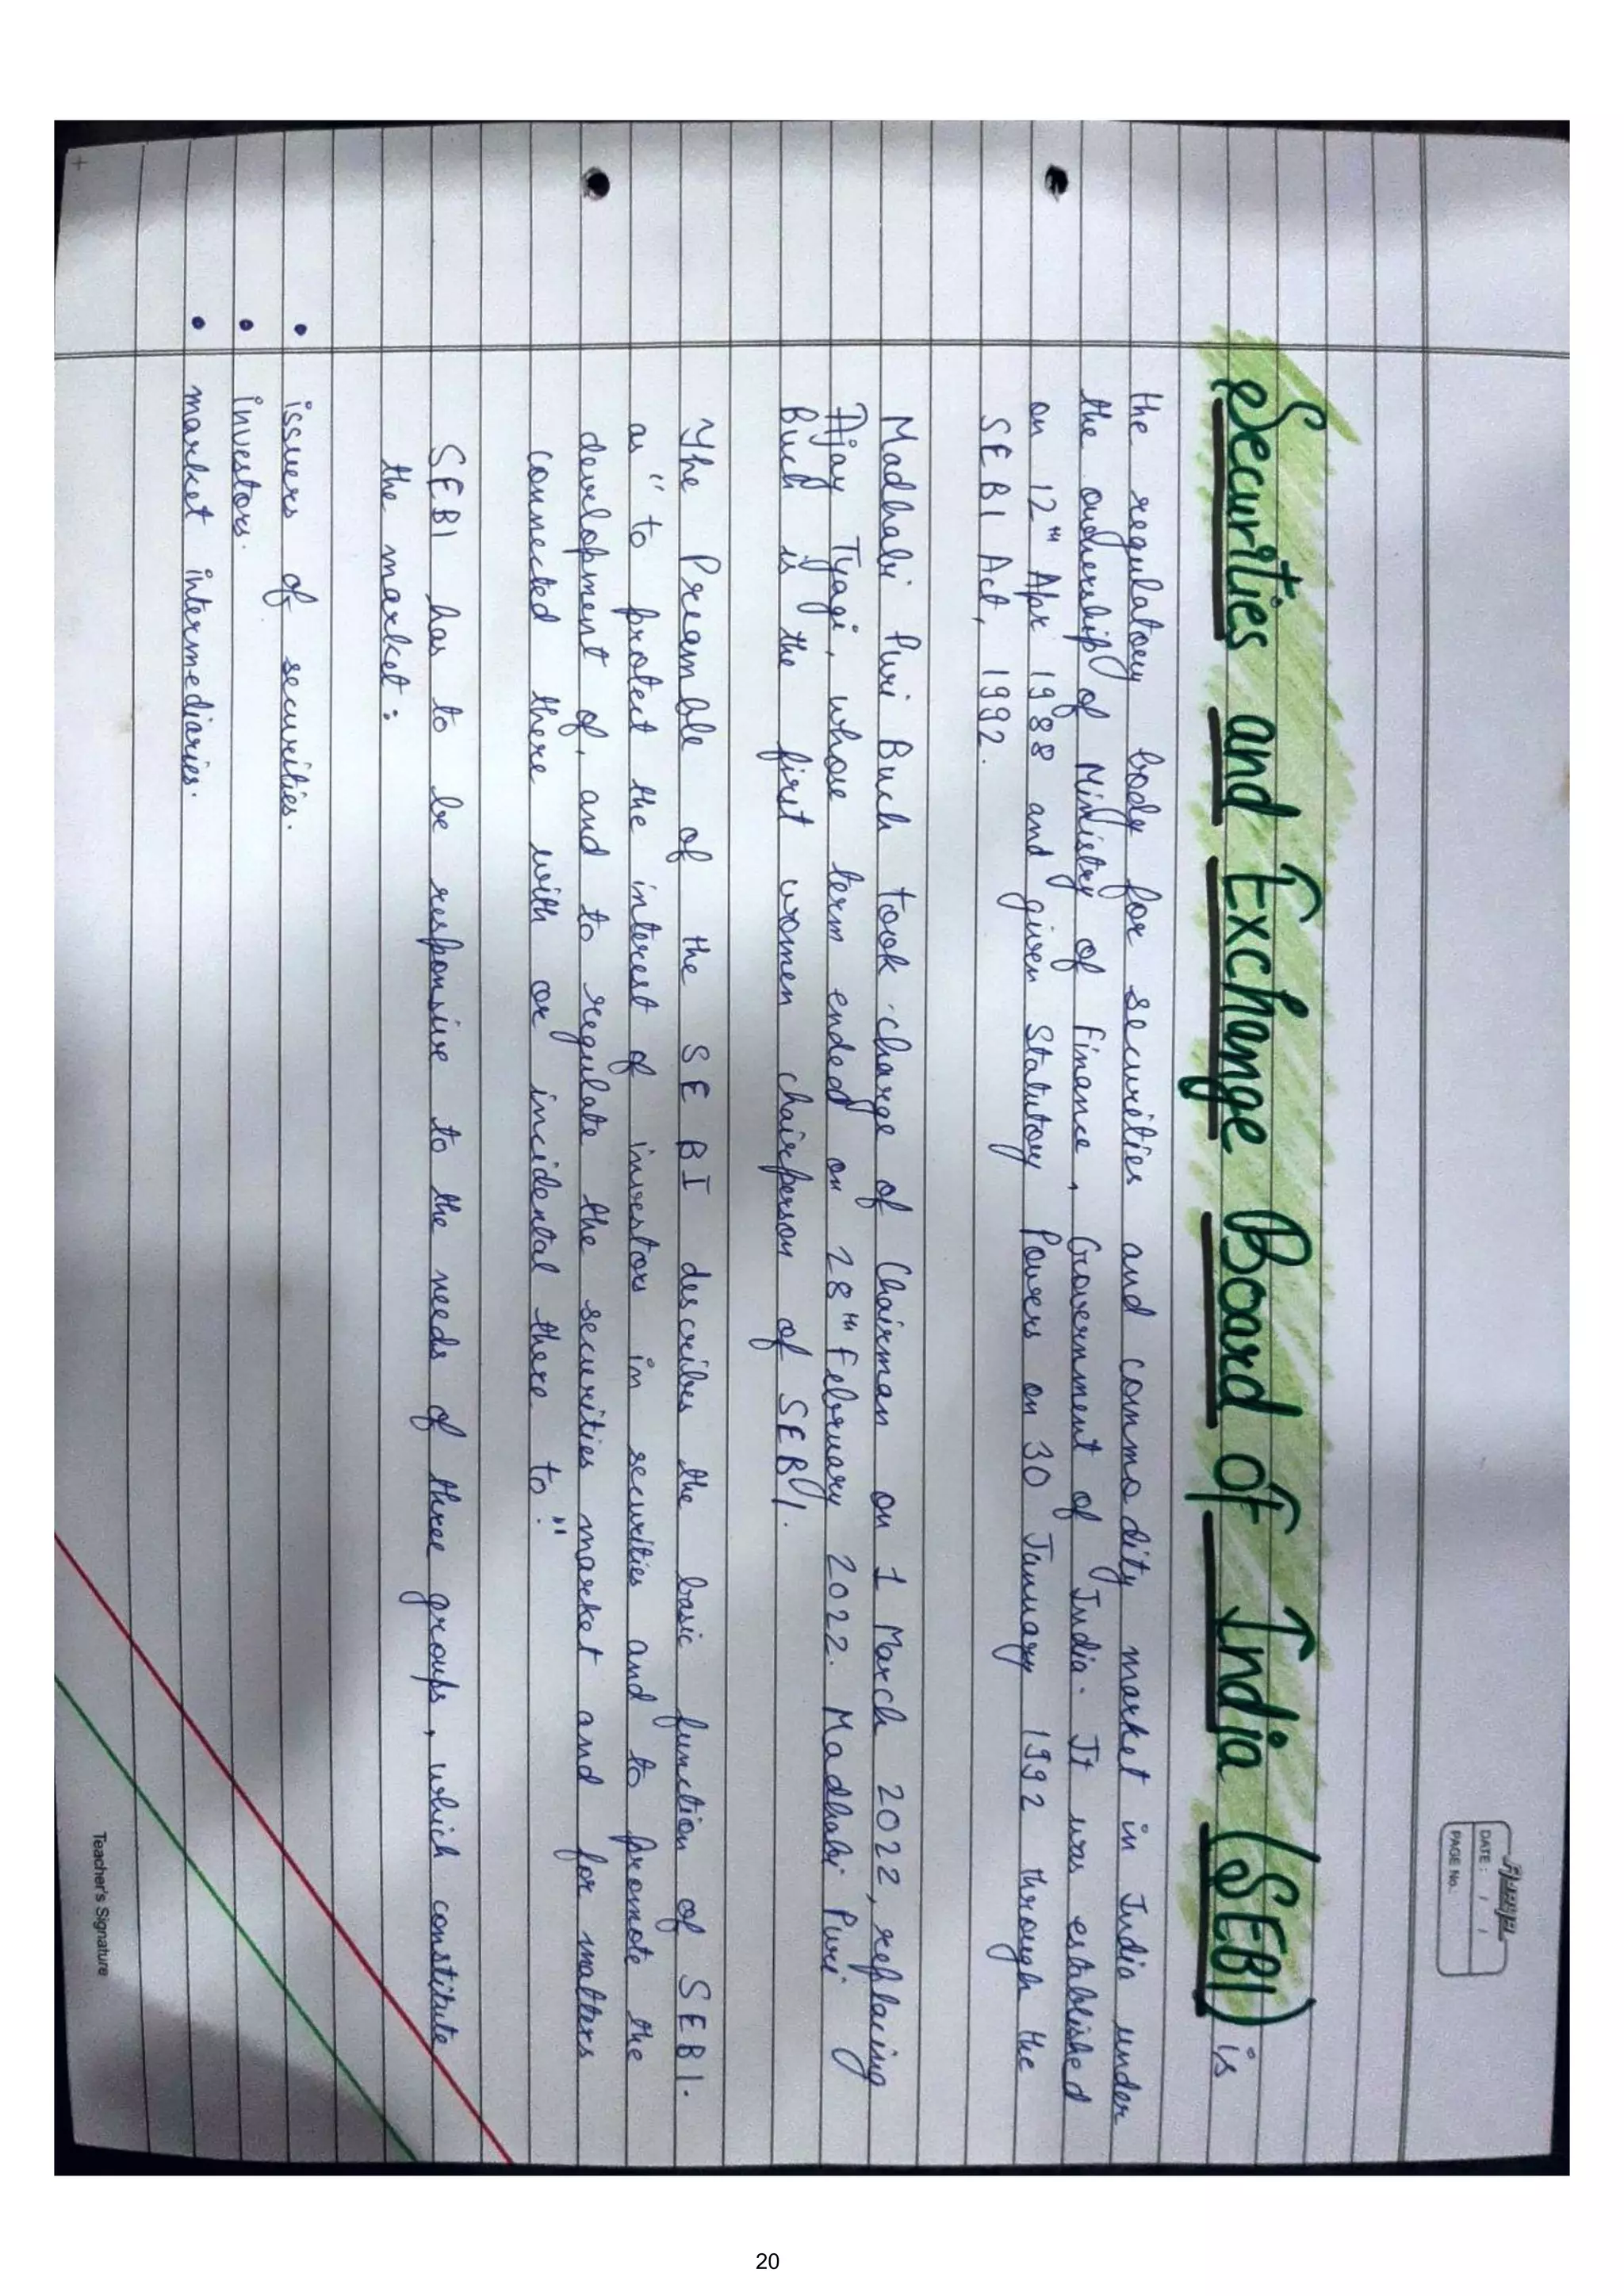 DATE: / /
PAGE No.:
Securities and Exchange Board of India (SEBI) is
the regulatory body for securities and commodity market in India under
the ownership of Ministry of Finance, Government of India. It was established
on 12th Apr 1988 and given Statutory Powers on 30 January 1992 through the
SEBI Act, 1992.
Madhabi Puri Buch took charge of Chairman on 1 March 2022, replacing
Ajay Tyagi, whose term ended on 28th February 2022. Madhabi Puri
Buch is the first women chairperson of SEBI.
The Preamble of the SEBI describes the basic function of SEBI.
as "to protect the interest of investors in securities and to promote the
development of, and to regulate the securities market and for matters
connected there with or incidental there to."
SEBI has to be responsive to the needs of three groups, which constitute
the market:
• issuers of securities.
• investors.
• market intermediaries.
Teacher's Signature
20